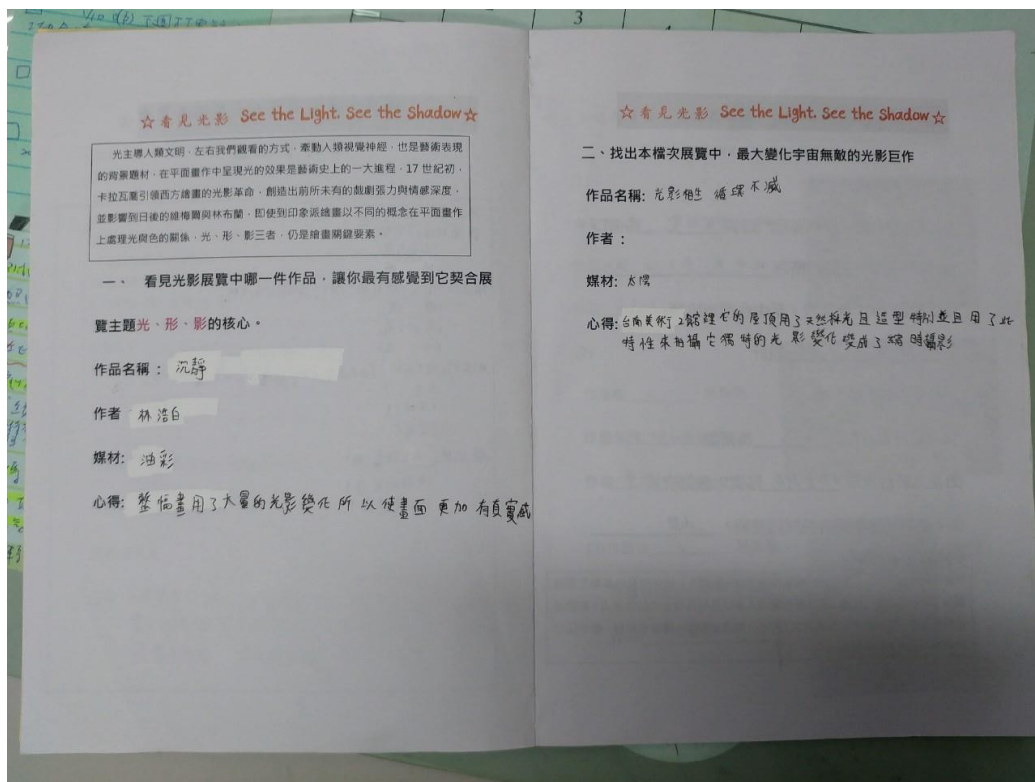 ☆看見光影 See the Light, See the Shadow☆
光主導人類文明，左右我們觀看的方式，牽動人類視覺神經，也是藝術表現
的背景題材，在平面畫作中呈現光的效果是藝術史上的一大進程，17 世紀初，
卡拉瓦喬引領西方繪畫的光影革命，創造出前所未有的戲劇張力與情感深度，
並影響到日後的維梅爾與林布蘭，即使到印象派繪畫以不同的概念在平面畫作
上處理光與色的關係，光、形、影三者，仍是繪畫關鍵要素。
一、 看見光影展覽中哪一件作品，讓你最有感覺到它契合展
覽主題光、形、影的核心。
作品名稱： 沉靜
作者 林浩白
媒材: 油彩
心得: 整幅畫用了大量的光影變化所以使畫面更加有真實感
☆看見光影 See the Light, See the Shadow☆
二、找出本檔次展覽中，最大變化宇宙無敵的光影巨作
作品名稱: 光影相生 循環不滅
作者：
媒材: 太陽
心得: 台南美術2館裡它的屋頂用了天然採光且造型特別並且用了此
特性來拍攝它獨特的光影變化變成了縮時攝影
3